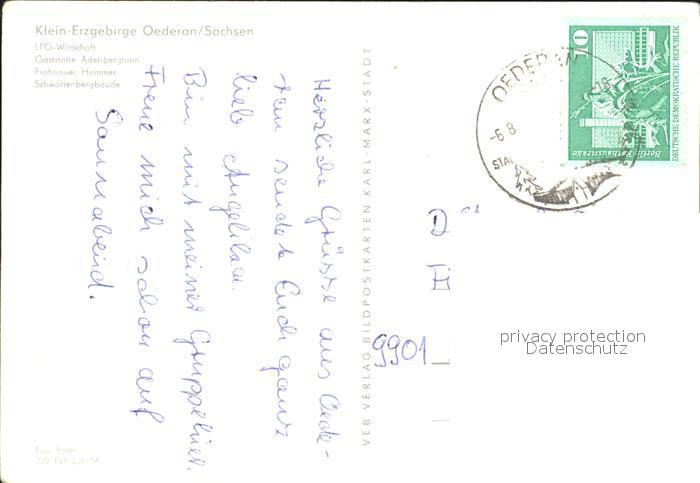 Klein-Erzgebirge Oederan/Sachsen
LPG-Wirtschaft
Gaststätte Adelsbergturm
Frohnauer Hammer
Schwartenbergbaude
Herzliche Grüsse aus Oede-
ran sendet Euch ganz
lieb Angelika.
Bin mit meiner Gruppe hier.
Freue mich schon auf
Sonnabend.
VEB VERLAG BILDPOSTKARTEN KARL-MARX-STADT
10
DEUTSCHE DEMOKRATISCHE REPUBLIK
Berlin-Rathausstraße
OEDERAN
-6.8
9901
privacy protection
Datenschutz